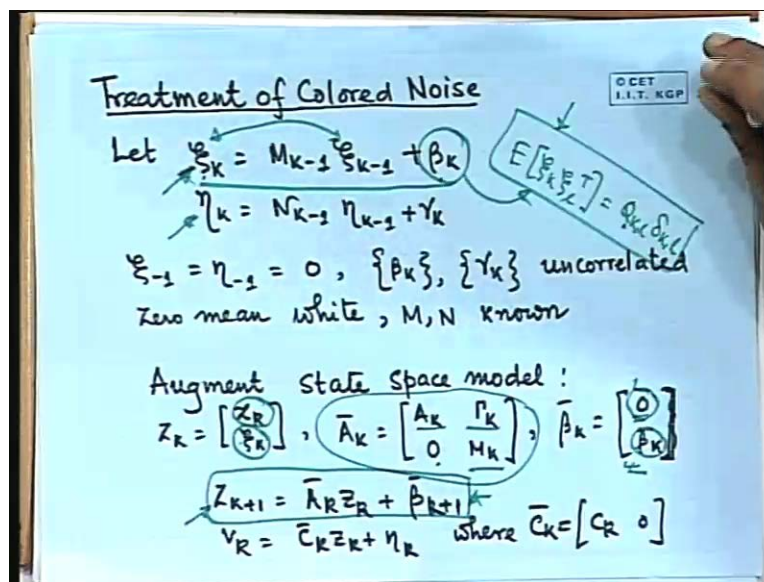 Treatment of Colored Noise
© CET
I.I.T. KGP
Let ξ_K = M_{K-1} ξ_{K-1} + β_K
E[ξ_K ξ_l^T] = Q_{K,l} δ_{K,l}
η_K = N_{K-1} η_{K-1} + γ_K
ξ_{-1} = η_{-1} = 0, {β_K}, {γ_K} uncorrelated
zero mean white, M, N known
Augment state space model :
Z_K = [Z_K ξ_K], Ā_K = [A_K Γ_K 0 M_K], β̄_K = [0 β_K]
Z_{K+1} = Ā_K Z_K + β̄_{K+1}
V_K = C̄_K Z_K + η_K where C̄_K = [C_K 0]